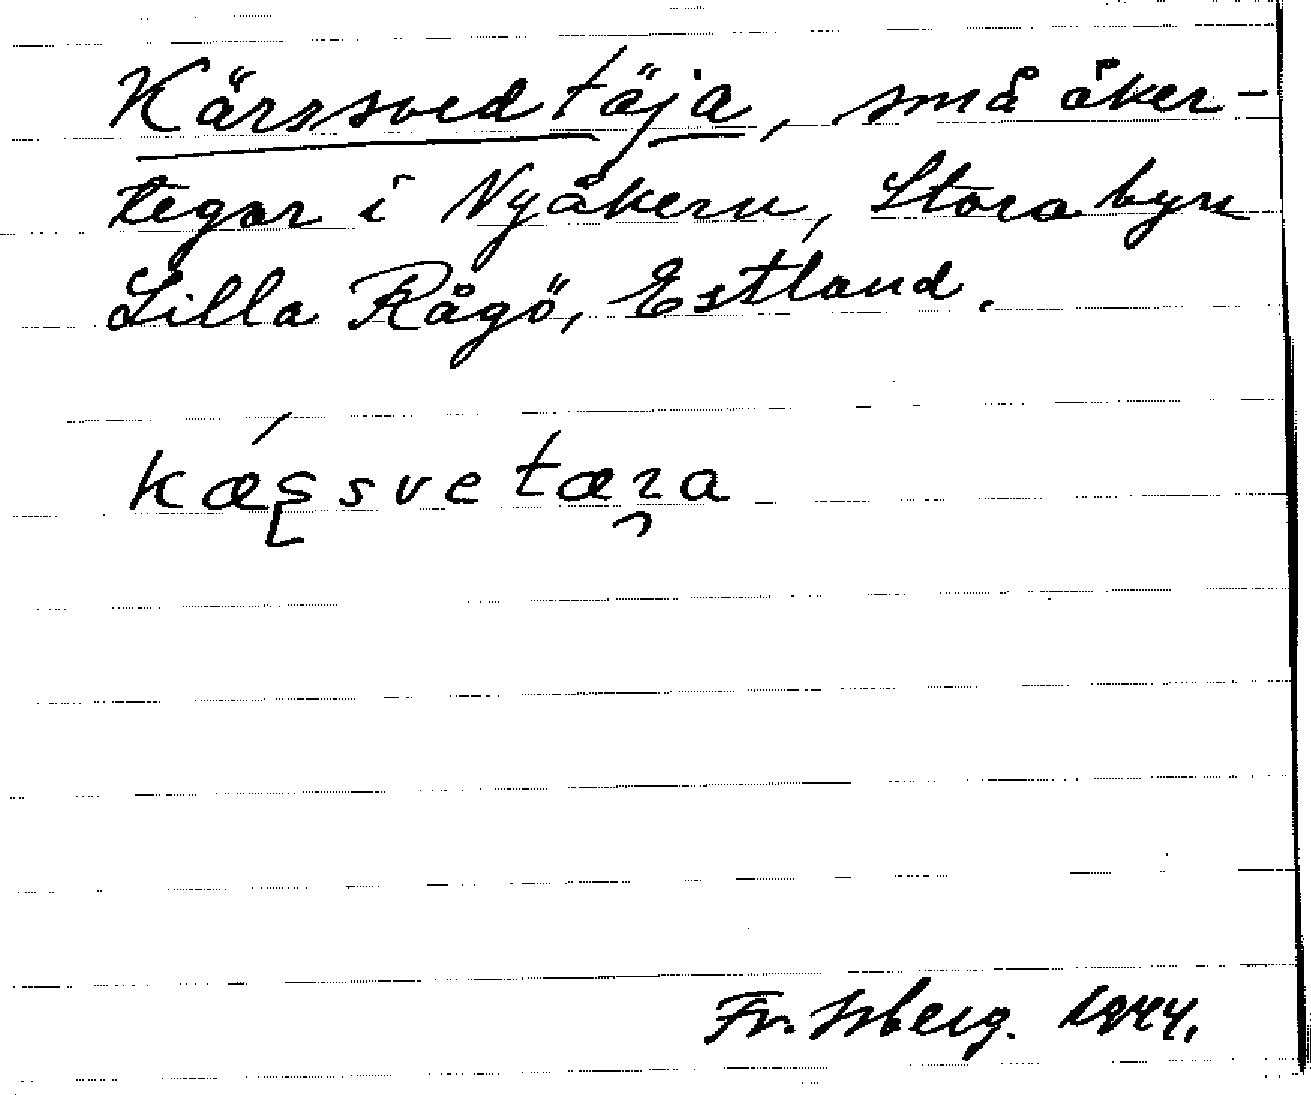 Kärssvedtäja, små åker-
tegar i Nyåkern, Stora byn
Lilla Rågö, Estland.
kæssvetæra
Fr. Isberg. 1944.